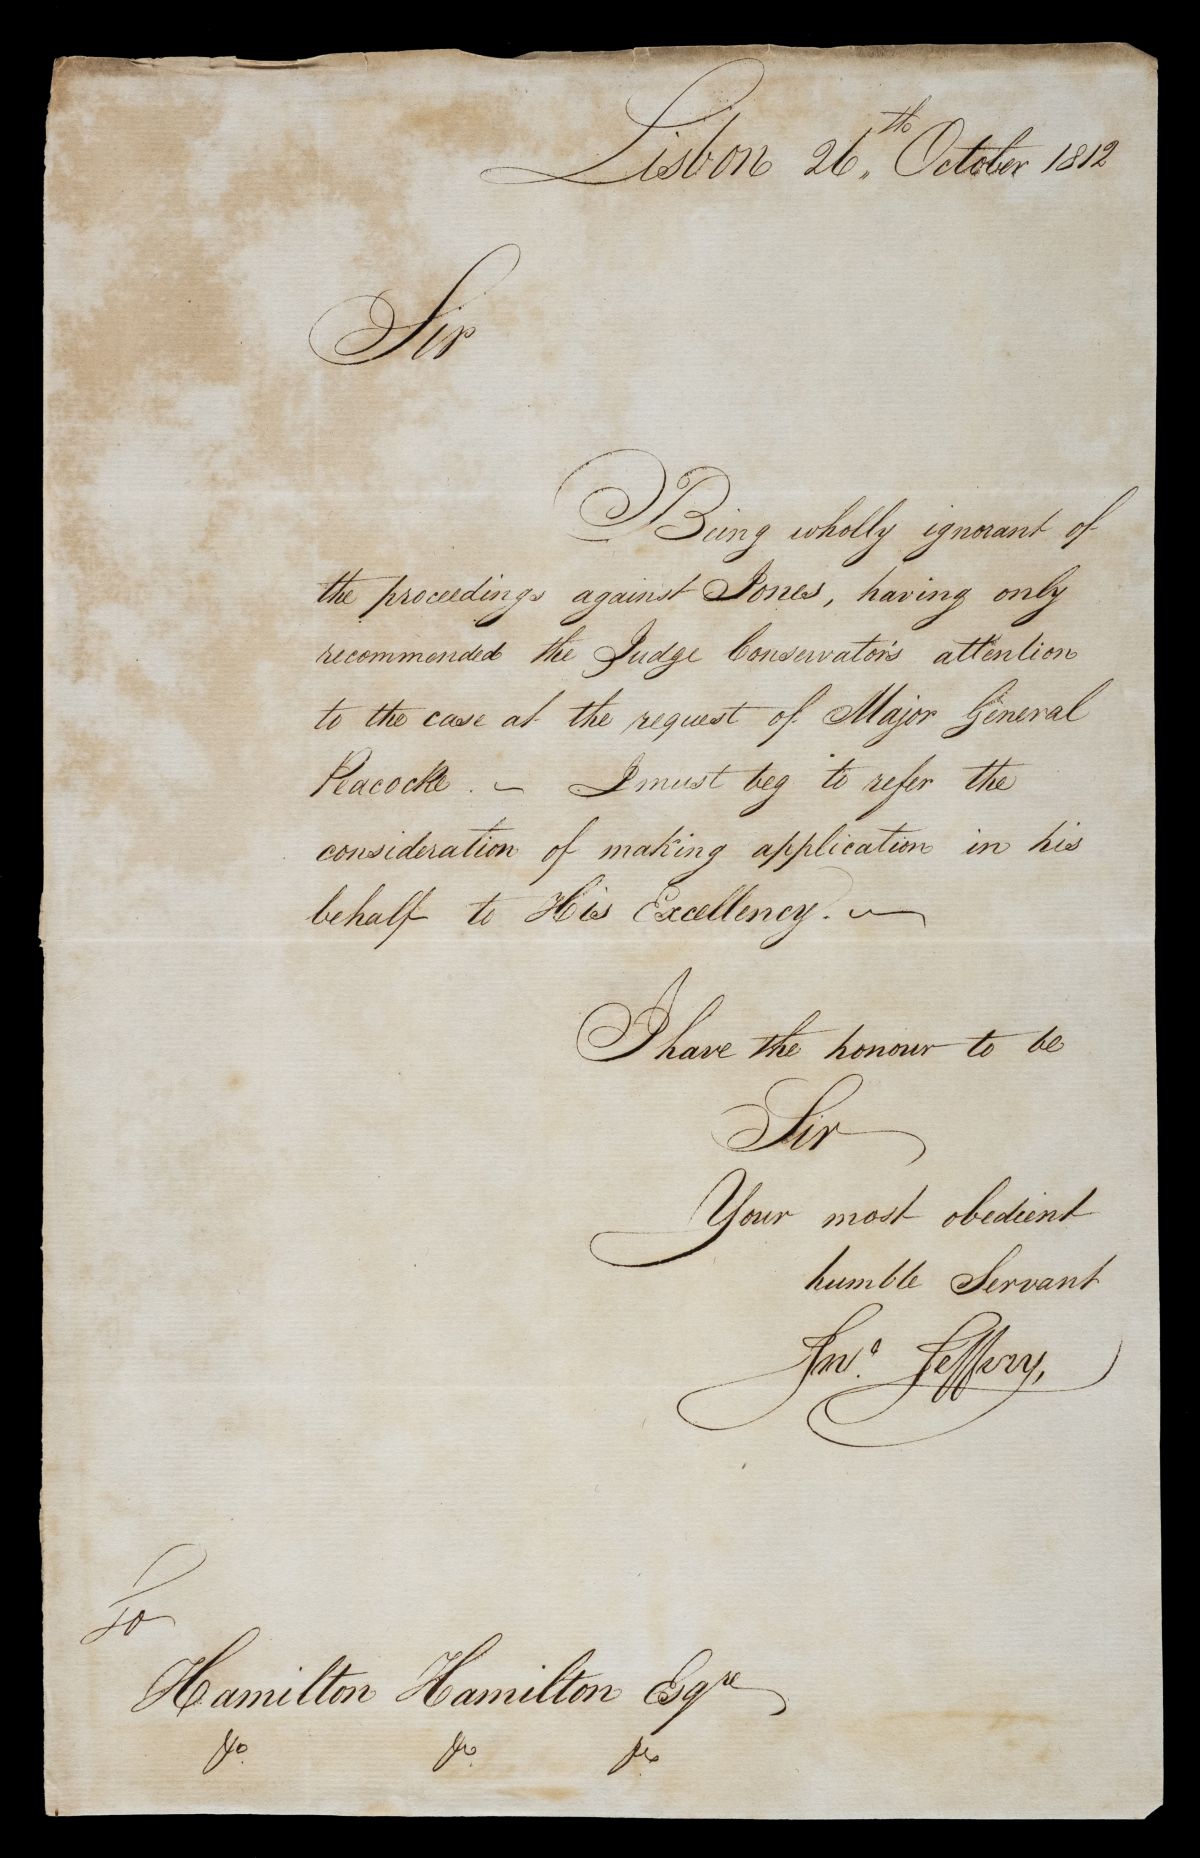 Lisbon 26th October 1812
Sir
Being wholly ignorant of
the proceedings against Jones, having only
recommended the Judge Conservator's attention
to the case at the request of Major General
Peacocke. — I must beg to refer the
consideration of making application in his
behalf to His Excellency. —
I have the honour to be
Sir
Your most obedient
humble Servant
Jno. Jeffery,
To
Hamilton Hamilton Esqre
&c. &c. &c